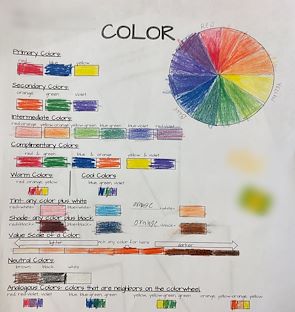 COLOR
RED
Primary Colors:
red blue yellow
Secondary Colors:
orange green violet
Intermediate Colors:
red-orange yellow-orange yellow-green blue-green blue-violet red-violet
Complimentary Colors:
red & green blue & orange yellow & violet
Warm Colors: Cool Colors
red, orange, yellow blue, green, violet
Tint- any color plus white
red+white= blue+white=
Shade- any color plus black
red+black= blue+black= orange
Value Scale of a Color:
lighter pick any color for here darker
Neutral Colors:
brown black white
Analogous Colors- colors that are neighbors on the colorwheel
red, red-violet, violet blue, blue-green, green yellow, yellow-green, green orange, yellow-orange, yellow